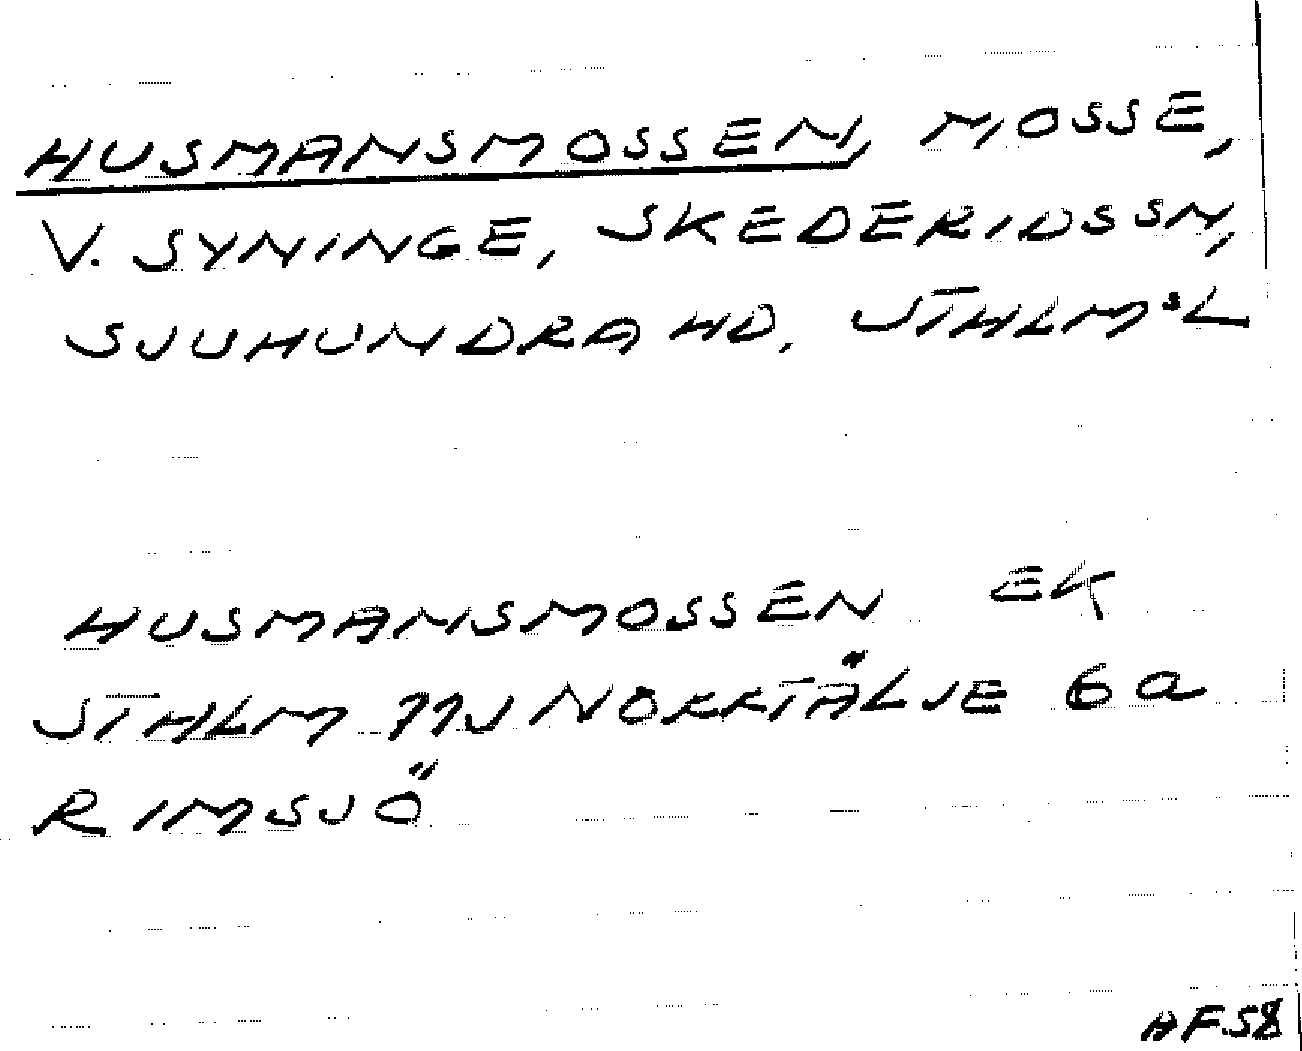 HUSMANSMOSSEN, MOSSE,
V. SYNINGE, SKEDERIDS SN,
SJUHUNDRA HD, STHLMS L
HUSMANSMOSSEN EK
STHLM 11J NORRTÄLJE 6a
RIMSJÖ
AF58